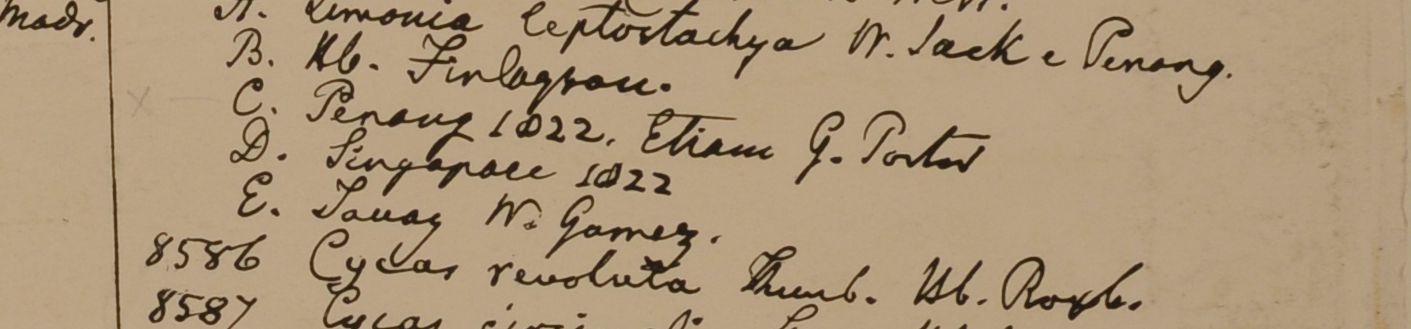 Madr.
A. Limonia leptostachya W. Jack e Penang.
B. Hb. Finlayson.
C. Penang 1822. Etiam G. Porter
D. Singapore 1822
E. Tavoy W. Gomez.
8586 Cycas revoluta Thunb. Hb. Roxb.
8587 Cycas